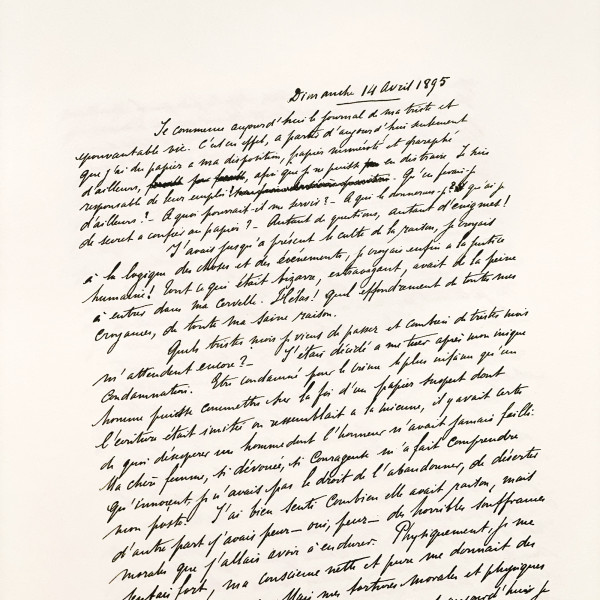 Dimanche 14 Avril 1895
Je commence aujourd'hui le journal de ma triste et
épouvantable vie. C'est en effet, à partir d'aujourd'hui seulement
que j'ai du papier à ma disposition, papier numéroté et paraphé
d'ailleurs, afin que je ne puisse en distraire. Je suis
responsable de leur emploi! Qu'en ferai-je
d'ailleurs? - A quoi pourrait-il me servir? - A qui le donnerais-je? Qu'ai-je
de secret à confier au papier? - Autant de questions, autant d'énigmes!
J'avais jusqu'à présent le culte de la raison, je croyais
à la logique des choses et des événements, je croyais enfin à la justice
humaine! Tout ce qui était bizarre, extravagant, avait de la peine
à entrer dans ma cervelle. Hélas! Quel effondrement de toutes mes
croyances, de toute ma saine raison.
Quels tristes mois je viens de passer et combien de tristes mois
m'attendent encore? - J'étais décidé à me tuer après mon inique
condamnation. Etre condamné pour le crime le plus infâme qu'un
homme puisse commettre sur la foi d'un papier suspect dont
l'écriture était imitée ou ressemblait à la mienne, il y avait certes
de quoi désespérer un homme dont l'honneur n'avait jamais failli.
Ma chère femme, si dévouée, si courageuse m'a fait comprendre
qu'innocent, je n'avais pas le droit de l'abandonner, de déserter
mon poste. J'ai bien senti combien elle avait raison, mais
d'autre part j'avais peur - oui, peur - des horribles souffrances
morales que j'allais avoir à endurer. Physiquement, je me
sentais fort, ma conscience nette et pure me donnait des
Mais mes tortures morales et physiques
aujourd'hui je